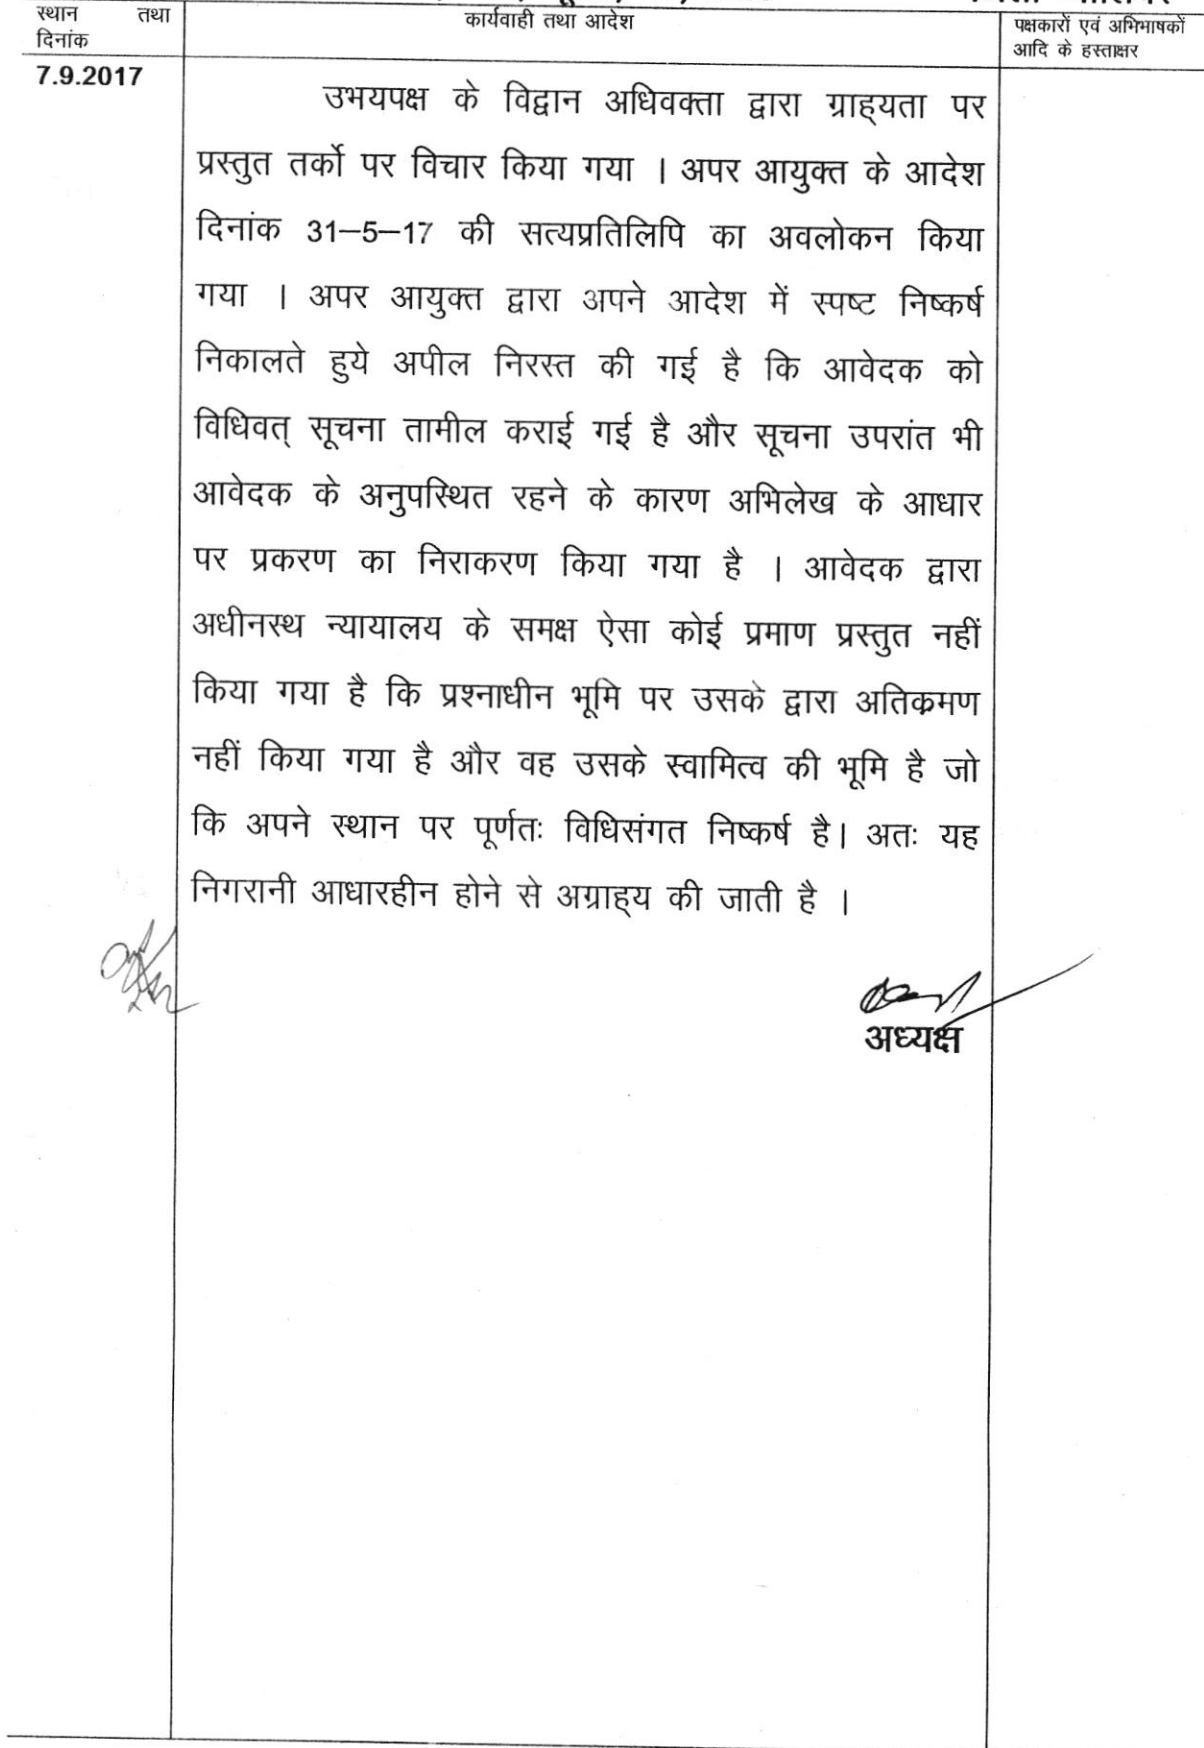 स्थान तथा
दिनांक
कार्यवाही तथा आदेश
पक्षकारों एवं अभिभाषकों
आदि के हस्ताक्षर
7.9.2017
उभयपक्ष के विद्वान अधिवक्ता द्वारा ग्राह्यता पर
प्रस्तुत तर्को पर विचार किया गया । अपर आयुक्त के आदेश
दिनांक 31–5–17 की सत्यप्रतिलिपि का अवलोकन किया
गया । अपर आयुक्त द्वारा अपने आदेश में स्पष्ट निष्कर्ष
निकालते हुये अपील निरस्त की गई है कि आवेदक को
विधिवत् सूचना तामील कराई गई है और सूचना उपरांत भी
आवेदक के अनुपस्थित रहने के कारण अभिलेख के आधार
पर प्रकरण का निराकरण किया गया है । आवेदक द्वारा
अधीनस्थ न्यायालय के समक्ष ऐसा कोई प्रमाण प्रस्तुत नहीं
किया गया है कि प्रश्नाधीन भूमि पर उसके द्वारा अतिक्रमण
नहीं किया गया है और वह उसके स्वामित्व की भूमि है जो
कि अपने स्थान पर पूर्णतः विधिसंगत निष्कर्ष है। अतः यह
निगरानी आधारहीन होने से अग्राह्य की जाती है ।
अध्यक्ष